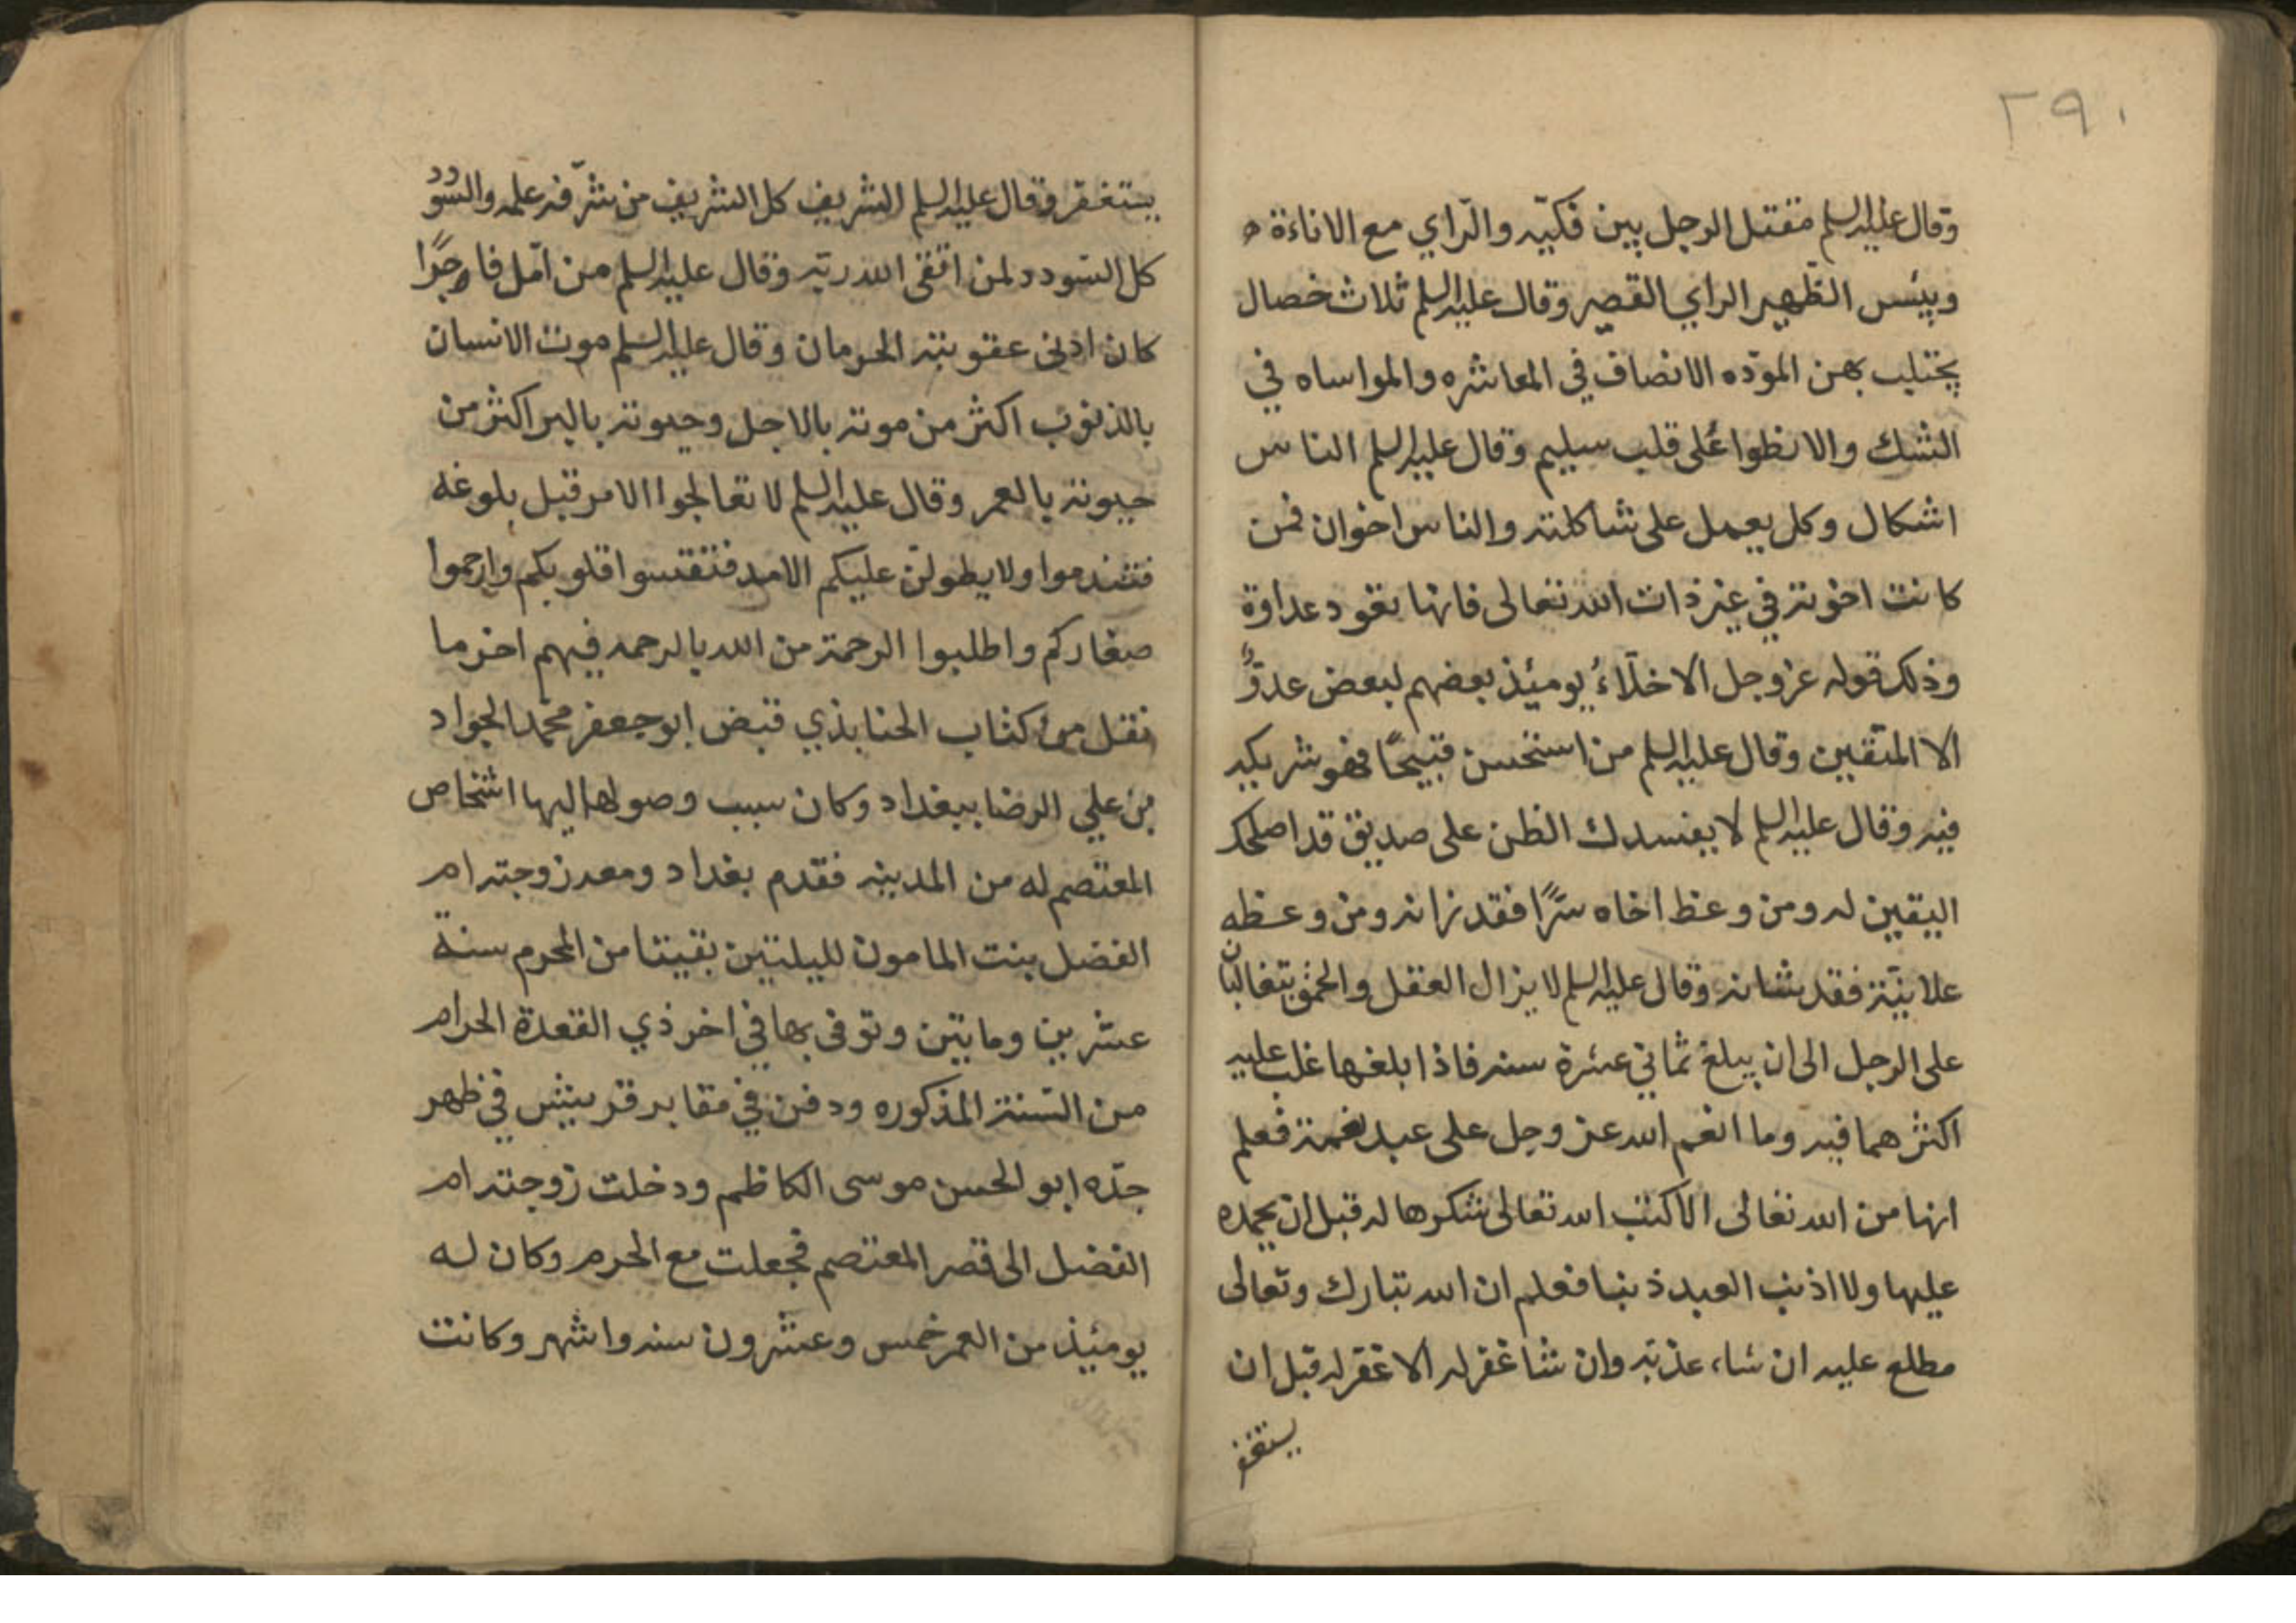 ٢٩٠
وقال عليه السلم مقتل الرجل بين فكيّه والرّاي مع الاناءة
وبئس الظّهير الراي القصير وقال عليه السلم ثلاث خصال
يجتلب بهن المودّه الانصاف في المعاشره والمواساه في
الشك والانظوا على قلب سليم وقال عليه السلم الناس
اشكال وكل يعمل على شاكلته والناس اخوان فمن
كانت اخوته في غير ذات الله تعالى فانها تعود عداوة
وذلك قوله عز وجل الاخلّاءُ يومئذ بعضهم لبعض عدوٌّ
الا المتّقين وقال عليه السلم من استحسن قبيحًا فهو شريكه
فيه وقال عليه السلم لا يفسدك الظن على صديق قد اصلحك
اليقين له ومن وعظ اخاه سرًّا فقد زانه ومن وعظه
علانيّته فقد شانه وقال عليه السلم لا يزال العقل والحمق يتغالبان
على الرجل الى ان يبلغ ثماني عشرة سنه فاذا بلغها غلب عليه
اكثرهما فيه وما انعم الله عز وجل على عبد نعمة فعلم
انها من الله تعالى الا كتب الله تعالى شكرها له قبل ان يحمده
عليها ولا اذنب العبد ذنبا فعلم ان الله تبارك وتعالى
مطلع عليه ان شاء عذبّه وان شا غفر له الا غفر له قبل ان
يستغفر
يستغفر وقال عليه السلم الشريف كل الشريف من شرّفه علمه والسودد
كل السّودد لمن اتقى الله ربّه وقال عليه السلم من امّل فاجرًا
كان ادنى عقوبته الحرمان وقال عليه السلم موت الانسان
بالذنوب اكثر من موته بالاجل وحيوته بالبر اكثر من
حيوته بالعمر وقال عليه السلم لا تعالجوا الامر قبل بلوغه
فتندموا ولا يطولنّ عليكم الامد فتقتسوا قلوبكم وارحموا
صغاركم واطلبوا الرحمة من الله بالرحمه فيهم اخر ما
نقل من كتاب الحنابذي قبض ابو جعفر محمّد الجواد
بن علي الرضا ببغداد وكان سبب وصولها اليها اشخاص
المعتصم له من المدينه فقدم بغداد ومعه زوجته ام
الفضل بنت المامون لليلتين بقيتا من المحرم سنة
عشرين ومايتين وتوفى بها في اخر ذي القعدة الحرام
من السّنة المذكوره ودفن في مقابر قريش في ظهر
جدّه ابو الحسن موسى الكاظم ودخلت زوجته ام
الفضل الى قصر المعتصم فجعلت مع الحرم وكان له
يومئيذ من العمر خمس وعشرون سنه واشهر وكانت